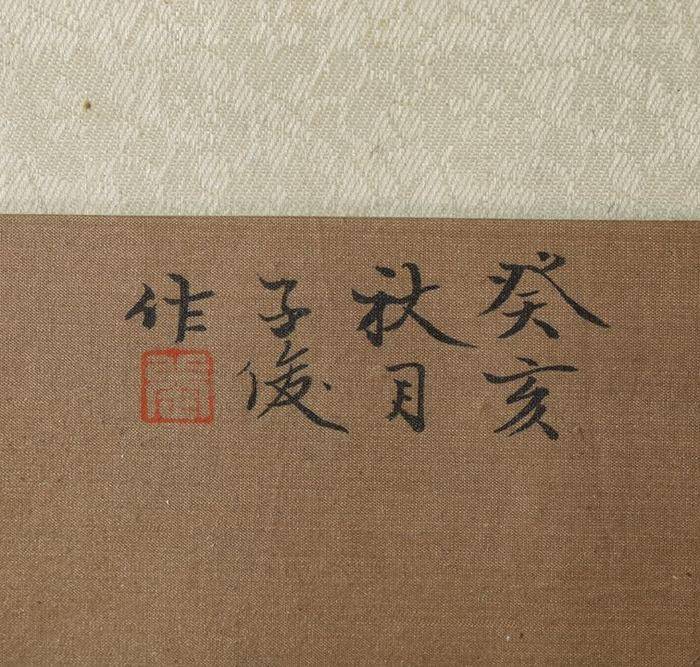 癸亥
秋月
子俊
作